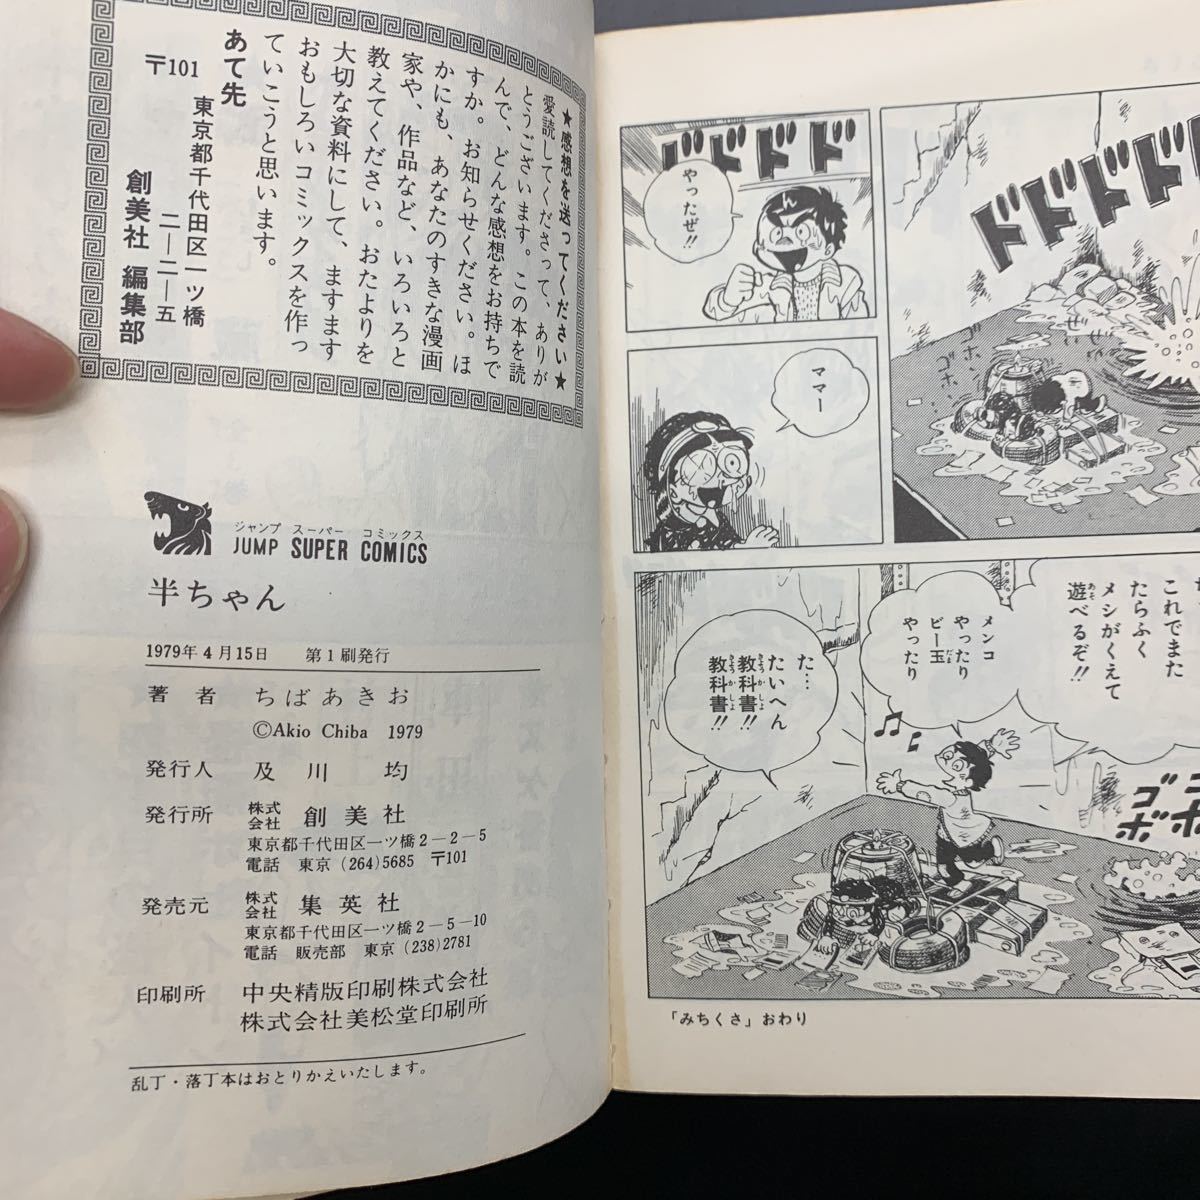 ★感想を送ってください★
愛読してくださって、ありが
とうございます。この本を読
んで、どんな感想をお持ちで
すか。お知らせください。ほ
かにも、あなたのすきな漫画
家や、作品など、いろいろと
教えてください。おたよりを
大切な資料にして、ますます
おもしろいコミックスを作っ
ていこうと思います。
あて先
〒101
東京都千代田区一ツ橋
二―二―五
創美社 編集部
ジャンプ スーパー コミックス
JUMP SUPER COMICS
半ちゃん
1979年4月15日 第1刷発行
著者 ちばあきお
©Akio Chiba 1979
発行人 及川 均
発行所 株式会社 創美社
東京都千代田区一ツ橋2-2-5
電話 東京 (264)5685 〒101
発売元 株式会社 集英社
東京都千代田区一ツ橋2-5-10
電話 販売部 東京 (238)2781
印刷所 中央精版印刷株式会社
株式会社美松堂印刷所
乱丁・落丁本はおとりかえいたします。
ドドドド
ゴホ
ゴホ
ぜい
ぜい
ドドドド
やったぜ!!
ママー
これでまた
たらふく
メシがくえて
遊べるぞ!!
メンコ
やったり
ビー玉
やったり
た…
たいへん
教科書!!
教科書!!
ゴボ
「みちくさ」おわり